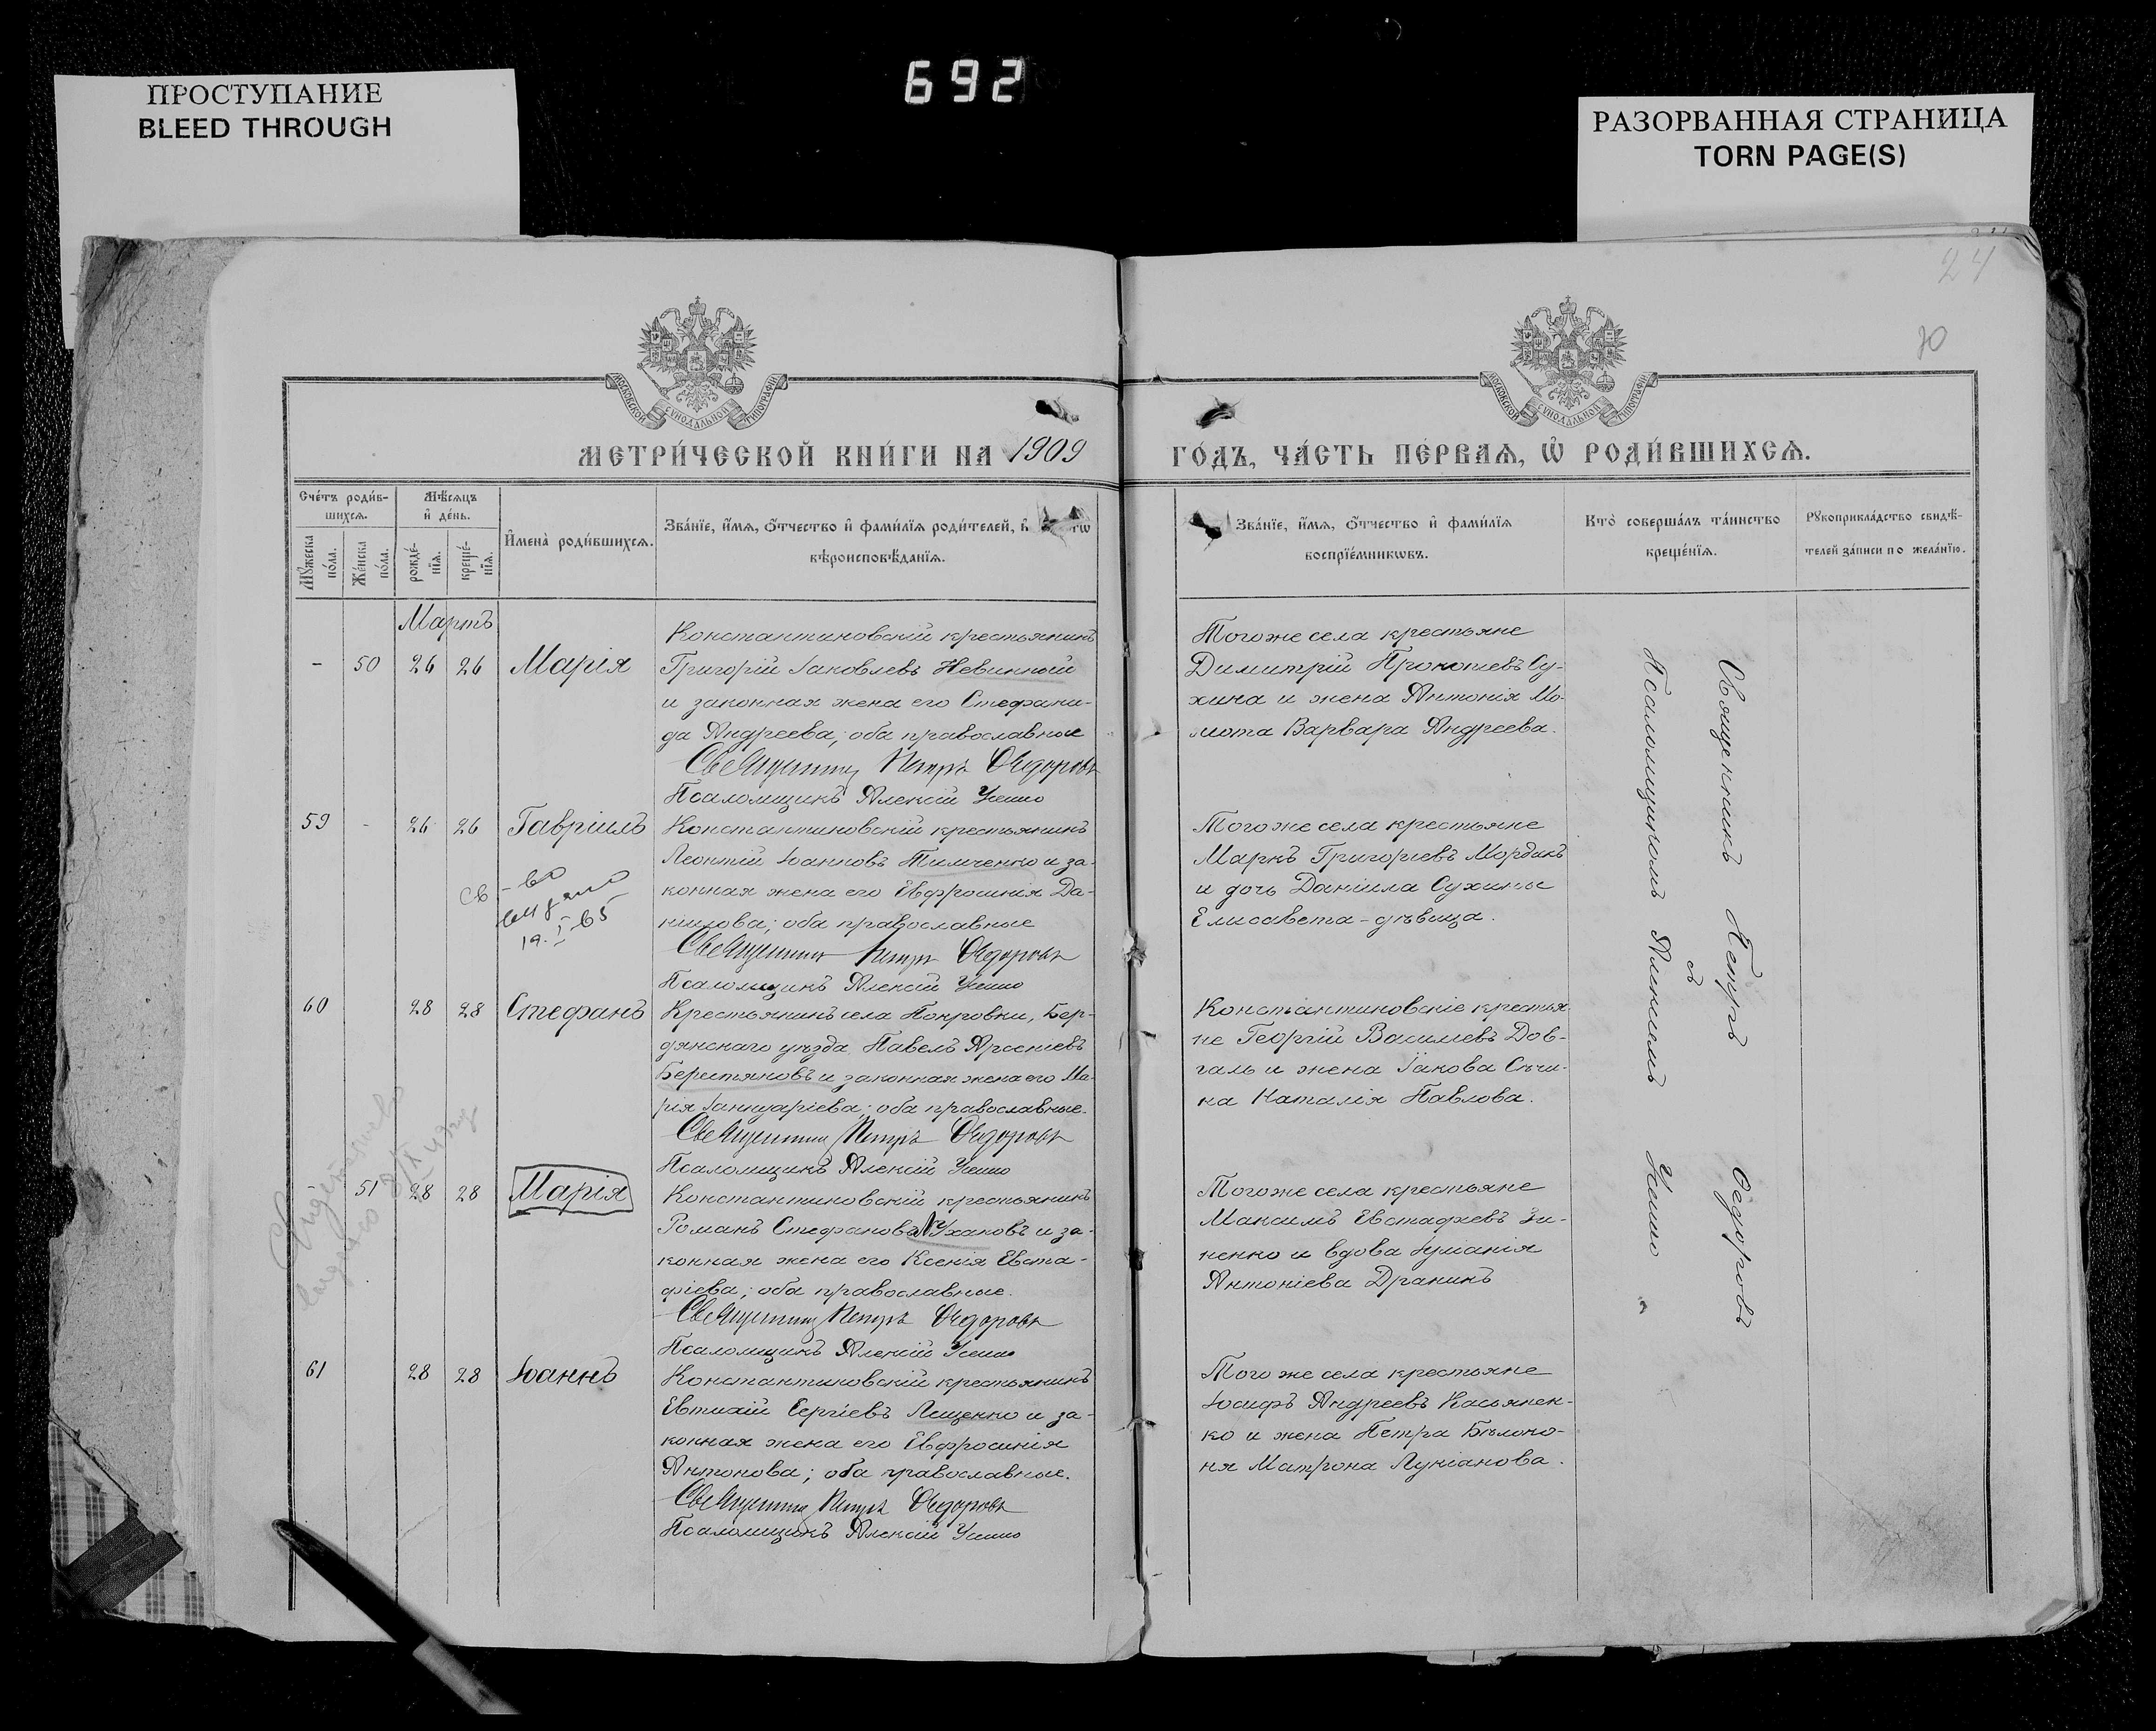 692
ПРОСТУПАНИЕ
BLEED THROUGH
РАЗОРВАННАЯ СТРАНИЦА
TORN PAGE(S)
24
МОСКОВСКОЙ СѴНОДАЛЬНОЙ ТИПОГРАФІИ
МОСКОВСКОЙ СѴНОДАЛЬНОЙ ТИПОГРАФІИ
МЕТРИ́ЧЕСКОЙ КНИ́ГИ НА 1909
ГО́ДЪ, ЧА́СТЬ ПЕ́РВАѦ, Ѡ҆ РОДИ́ВШИХСѦ.
Сче́тъ роди́в-
шихсѧ.
Мꙋ́жеска по́ла.
Же́нска по́ла.
Мѣ́сѧцъ
и҆ де́нь.
рожде́-
нїѧ.
креще́-
нїѧ.
И҆мена̀ роди́вшихсѧ.
Зва́нїе, и҆́мѧ, ѻ҆́тчество и҆ фами́лїѧ роди́телей, и҆
вѣроисповѣ́данїѧ.
Зва́нїе, и҆́мѧ, ѻ҆́тчество и҆ фами́лїѧ
воспрїе́мникѡвъ.
Кто̀ соверша́лъ та́инство
креще́нїѧ.
Рꙋкоприкла́дство свидѣ́-
телей за́писи по жела́нїю.
Мартъ
- 50 26 26 Марія
Константиновскій крестьянинъ
Григорій Іаковлевъ Невинный
и законная жена его Стефани-
да Андреева; оба православные
Священникъ Петръ Ѳедоровъ
Псаломщикъ Алексій Усенко
Того же села крестьяне
Димитрій Прокопіевъ Су-
хина и жена Антонія Мо-
мота Варвара Андреева.
59 - 26 26 Гавріилъ
св-во
выдано
19.I-65
Константиновскій крестьянинъ
Леонтій Іоанновъ Тимченко и за-
конная жена его Евфросинія Да-
ніилова; оба православные
Священникъ Петръ Ѳедоровъ
Псаломщикъ Алексій Усенко
Того же села крестьяне
Маркъ Григоріевъ Мордикъ
и дочь Даніила Сухины
Елисавета - дѣвица.
60 28 28 Стефанъ
Крестьянинъ села Покровки, Бер-
дянскаго уѣзда Павелъ Арсеніевъ
Берестяновъ и законная жена его Ма-
рія Іаннуаріева; оба православные.
Священникъ Петръ Ѳедоровъ
Псаломщикъ Алексій Усенко
Константиновскіе крестья-
не Георгій Василіевъ Дов-
галь и жена Іакова Сѣчи-
на Наталія Павлова.
- 51 28 28 Марія
Константиновскій крестьянинъ
Романъ Стефановъ Мухановъ и за-
конная жена его Ксенія Евста-
фіева; оба православные.
Священникъ Петръ Ѳедоровъ
Псаломщикъ Алексій Усенко
Того же села крестьяне
Максимъ Евстафіевъ Зи-
ненко и вдова Іуліанія
Антоніева Дракинъ
61 28 28 Іоаннъ
Константиновскій крестьянинъ
Евтихій Сергіевъ Лещенко и за-
конная жена его Евфросинія
Антонова; оба православные.
Священникъ Петръ Ѳедоровъ
Псаломщикъ Алексій Усенко
Того же села крестьяне
Іосифъ Андреевъ Касьянен-
ко и жена Петра Бѣлоко-
ня Матрона Лукіанова.
Священникъ Петръ Ѳедоровъ
съ
Псаломщикомъ Алексіемъ Усенко